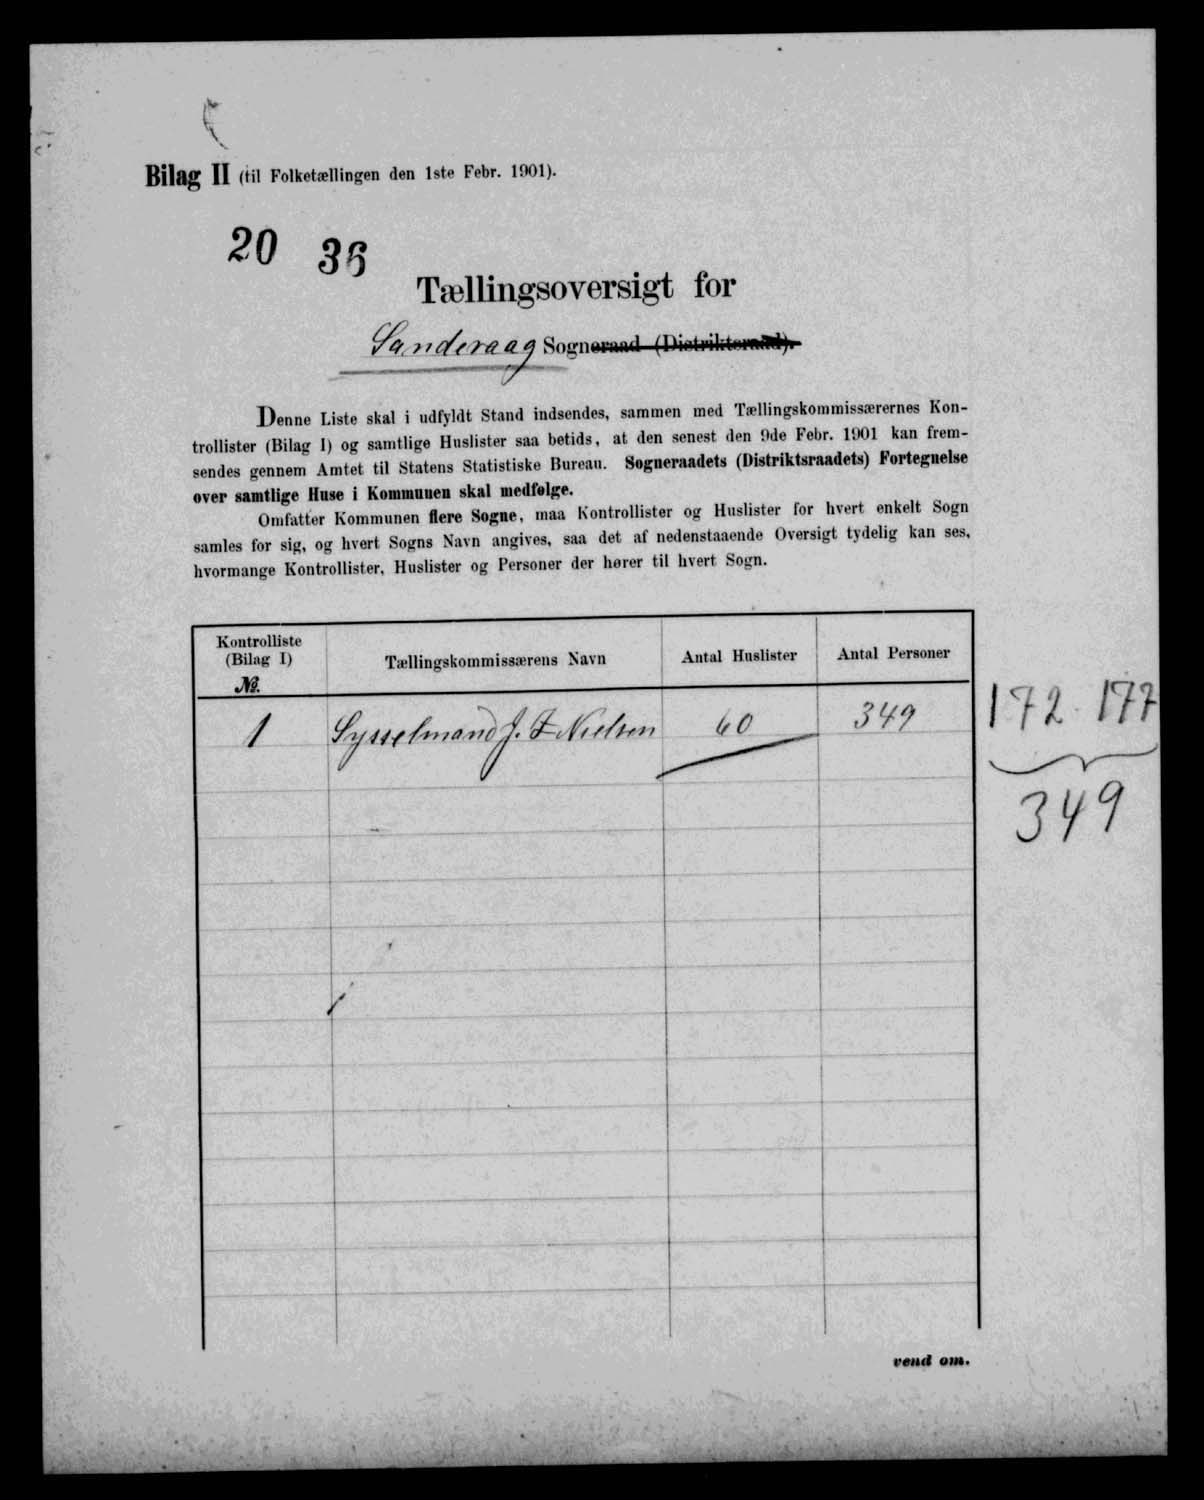 Bilag II (til Folketællingen den 1ste Febr. 1901).
20 36
Tællingsoversigt for
Sanderaag Sogneraad (Distriktsraad).
Denne Liste skal i udfyldt Stand indsendes, sammen med Tællingskommissærernes Kon-
trollister (Bilag I) og samtlige Huslister saa betids, at den senest den 9de Febr. 1901 kan frem-
sendes gennem Amtet til Statens Statistiske Bureau. Sogneraadets (Distriktsraadets) Fortegnelse
over samtlige Huse i Kommunen skal medfølge.
Omfatter Kommunen flere Sogne, maa Kontrollister og Huslister for hvert enkelt Sogn
samles for sig, og hvert Sogns Navn angives, saa det af nedenstaaende Oversigt tydelig kan ses,
hvormange Kontrollister, Huslister og Personer der hører til hvert Sogn.
Kontrolliste
(Bilag I)
№.
Tællingskommissærens Navn
Antal Huslister
Antal Personer
1 Sysselmand J. F Nielsen 60 349
172 177
349
vend om.